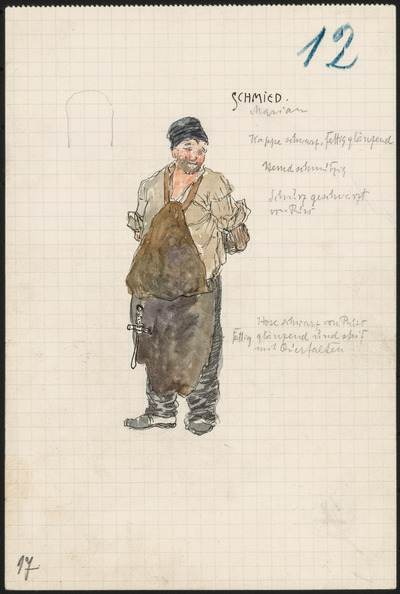 12
SCHMIED.
Marian
Kappe schwarz, fettig glänzend
Hemd schmutzig
Schurz geschwärzt
von Russ
Hose schwarz von Russ
fettig glänzend und steif
mit Querfalten
17